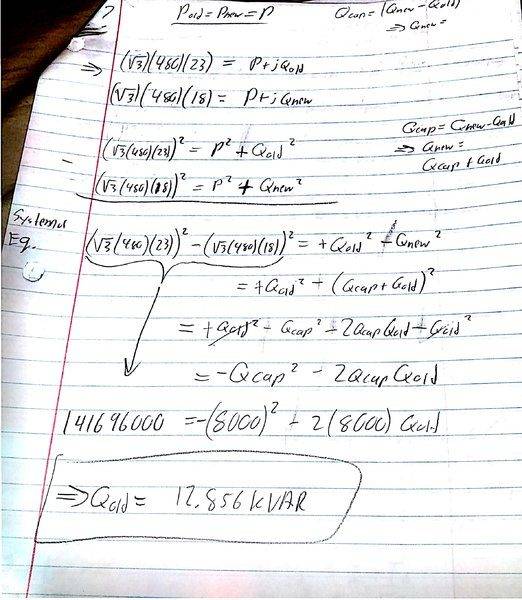 P_old = P_new = P
Q_cap = (Q_new - Q_old)
⇒ Q_new =
⇒ (√3)(480)(23) = P + jQ_old
(√3)(480)(18) = P + jQ_new
Q_cap = Q_new - Q_old
⇒ Q_new =
Q_cap + Q_old
(√3(480)(23))² = P² + Q_old²
- (√3(480)(18))² = P² + Q_new²
System of
Eq.
(√3(480)(23))² - (√3(480)(18))² = +Q_old² - Q_new²
= +Q_old² - (Q_cap + Q_old)²
= +Q_old² - Q_cap² - 2Q_cap Q_old - Q_old²
= -Q_cap² - 2Q_cap Q_old
141696000 = -(8000)² - 2(8000) Q_old
⇒ Q_old = 12.856 kVAR